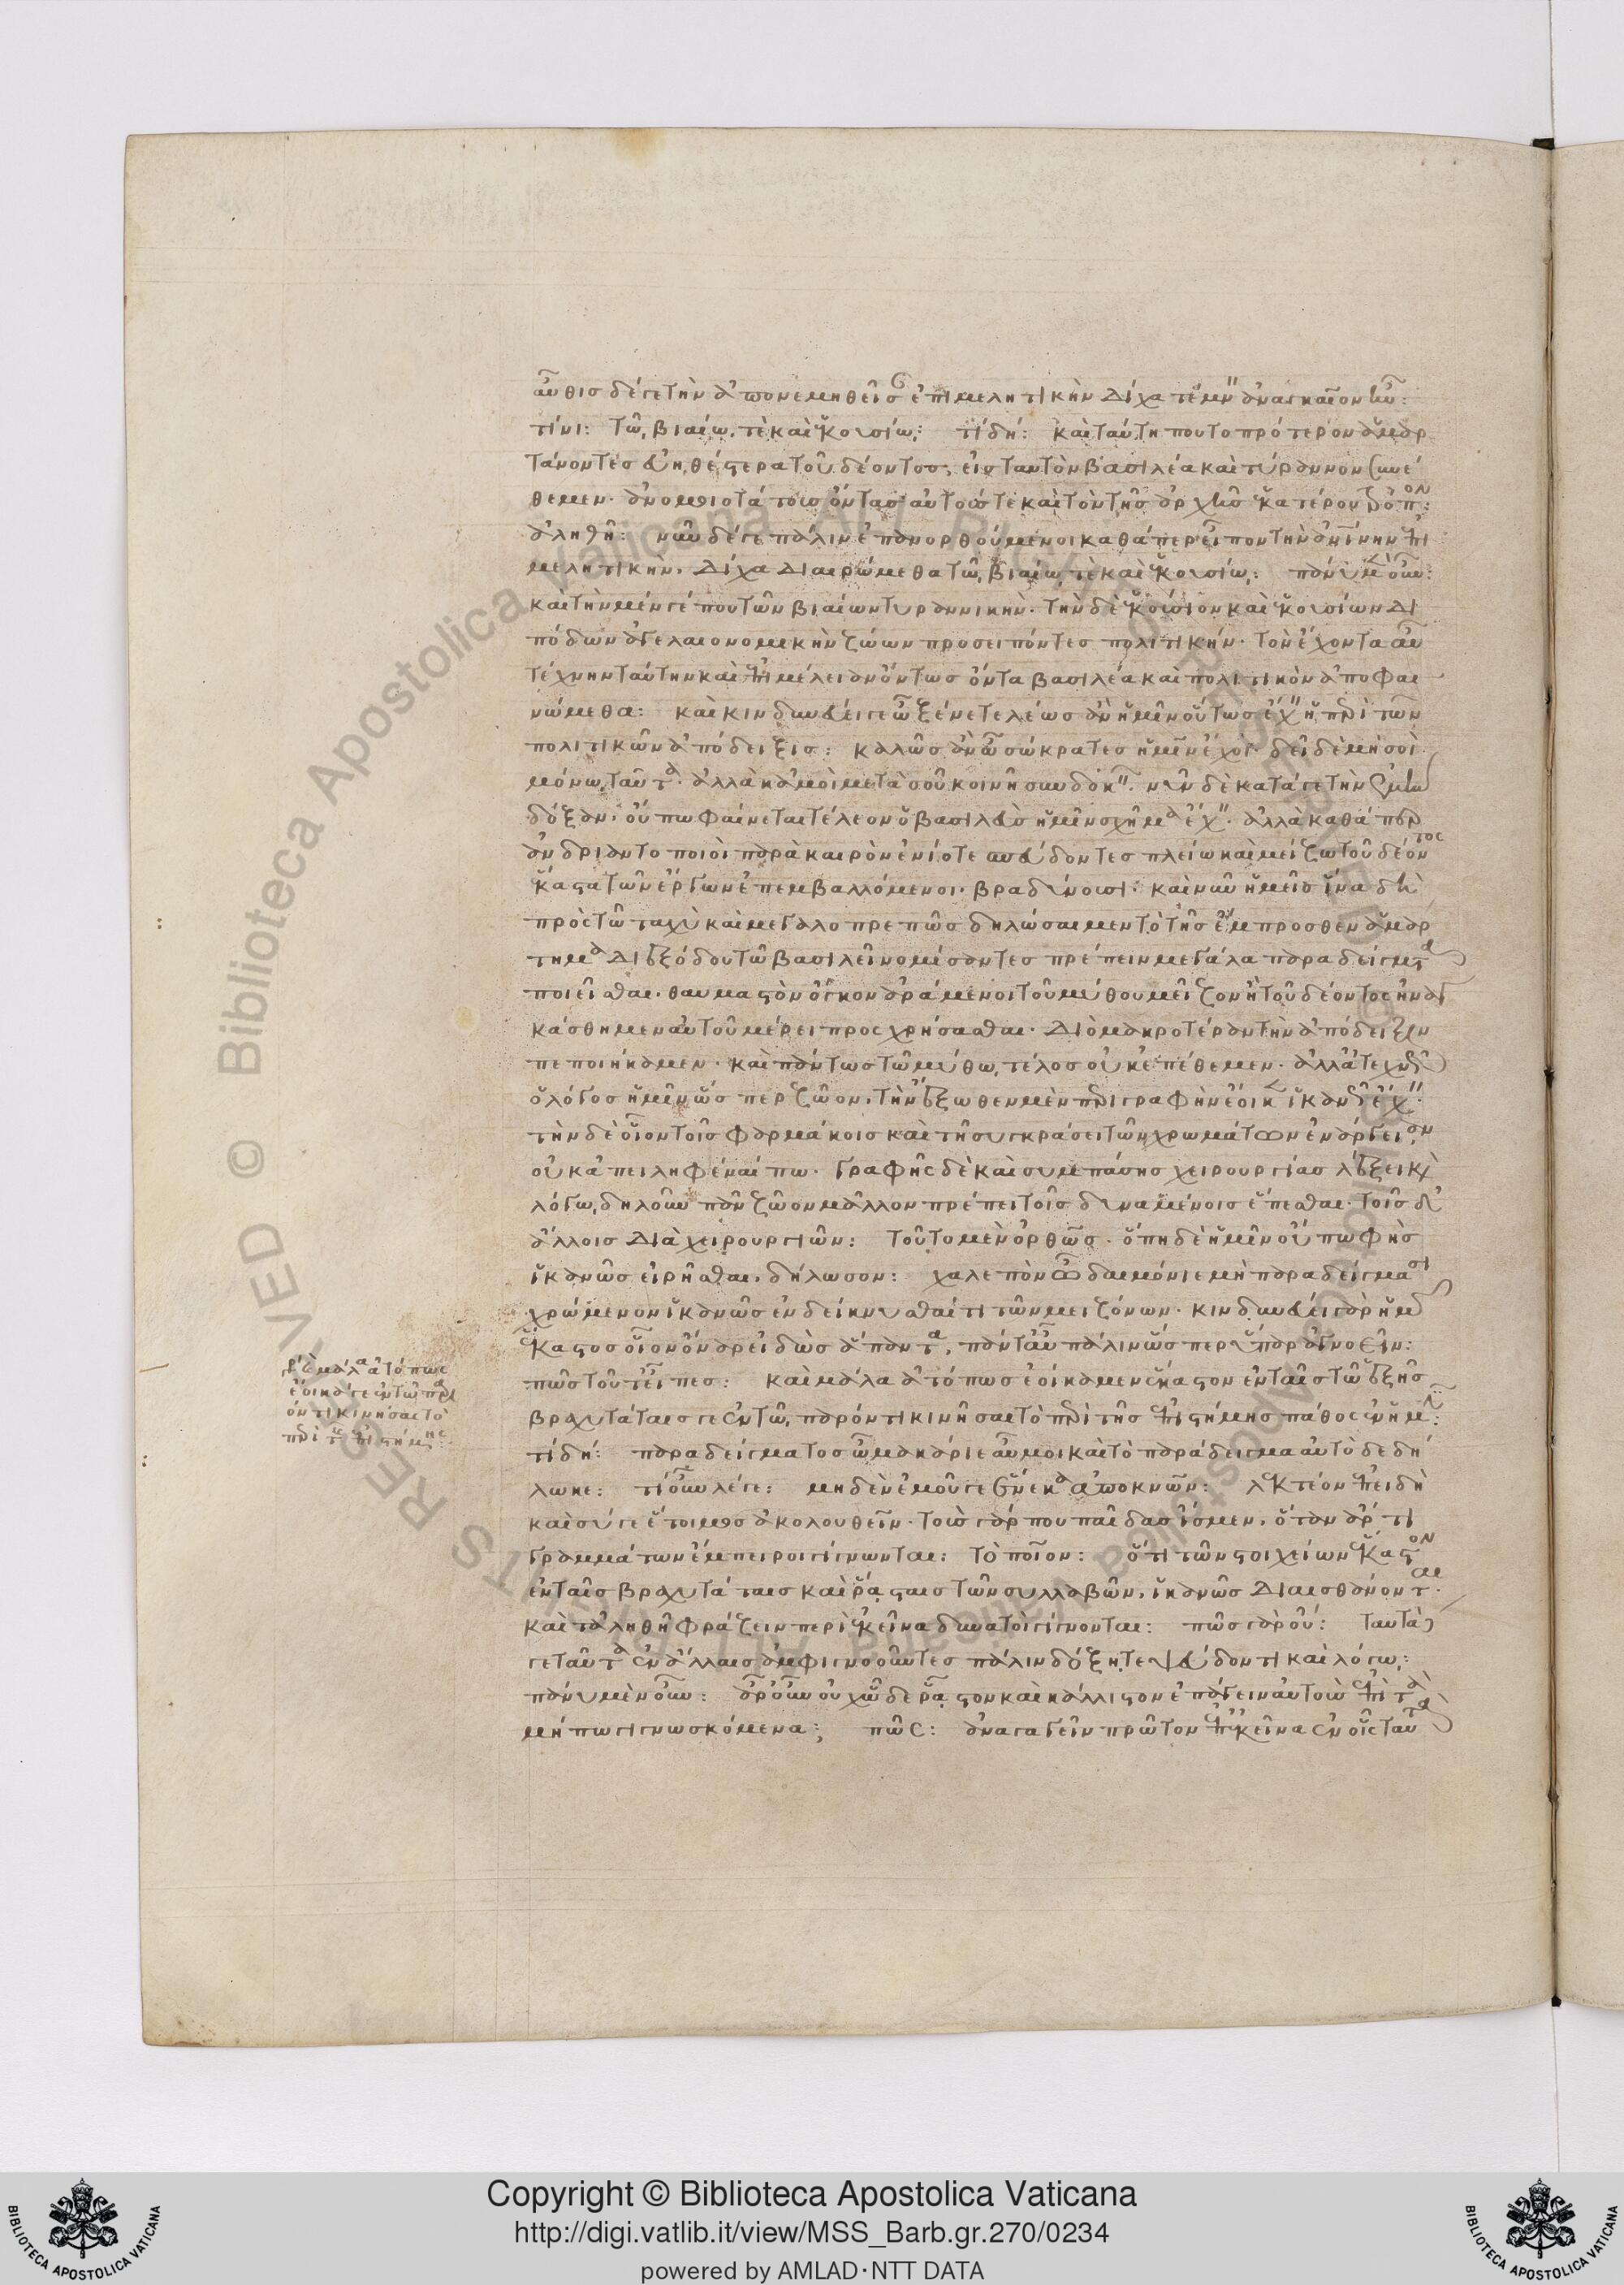 αὖθις δέ γε τὴν ἀπονεμηθεῖσ ἐπιμελητικὴν δίχα τέμν ἀναγκαῖον ἦν:
τίνι: τῶ, βιαίω, τὲ καὶ ἑκουσίω,: τί δή: καὶ ταύτη που το πρότερον ἁμαρ
τάνοντες εὐηθέστερα τοῦ δέοντος, εἰς ταυτὸν βασιλέα καὶ τύραννον συνέ
θεμεν· ἀνομοιοτάτους ὄντας αὐτούς τε καὶ τὸν τῆς ἀρχῆς ἑκατέρου τρόπον:
ἀληθῆ: νῦν δέ γε πάλιν ἐπανορθούμενοι καθάπερ εἶπον τὴν ἀνθρωπίνην ἐπι
μελητικὴν, δίχα διαιρώμεθα τῶ, βιαίω, τὲ καὶ ἑκουσίω,: πάνυ μὲν οὖν:
καὶ τὴν μέν γέ που τῶν βιαίων τυραννικήν· τὴν δὲ ἑκούσιον καὶ ἑκουσίων δι
πόδων ἀγελαιονομικὴν ζώων προσειπόντες πολιτικήν· τὸν ἔχοντα αὖ
τέχνην ταύτην καὶ ἐπιμέλειαν ὄντως ὄντα βασιλέα καὶ πολιτικὸν ἀποφαι
νώμεθα: καὶ κινδυνεύει γε ὦ ξένε τελέως ἂν ἡμῖν οὕτως ἔχειν ἡ περὶ τῶν
πολιτικῶν ἀπόδειξις: καλῶς ἂν ὦ σώκρατες ἡμῖν ἔχοι· δεῖ δὲ μὴ σοὶ
μόνω, ταῦτα· ἀλλὰ κἀμοὶ μετὰ σοῦ κοινῆ συνδοκεῖν. νῦν δὲ κατά γε τὴν ἐμὴν
δόξαν· οὔπω φαίνεται τέλεον ὁ βασιλεὺς ἡμῖν σχῆμα ἔχειν· ἀλλὰ καθάπερ
ἀνδριαντοποιοὶ παρὰ καιρὸν ἐνίοτε σπεύδοντες πλείω καὶ μείζω τοῦ δέοντος
ἕκαστα τῶν ἔργων ἐπεμβαλλόμενοι· βραδύνουσι: καὶ νῦν ἡμεῖς ἵνα δὴ
πρὸς τῶ ταχὺ καὶ μεγαλοπρεπῶς δηλώσαιμεν τὸ τῆς ἔμπροσθεν ἁμάρ
τημα διεξόδου τῶ βασιλεῖ νομίσαντες πρέπειν μεγάλα παραδείγματα
ποιεῖσθαι· θαυμαστὸν ὄγκον ἀράμενοι τοῦ μύθου μεῖζον ἢ τοῦ δέοντος ἠναγ
κάσθημεν αὐτοῦ μέρει προσχρήσασθαι· διὸ μακροτέραν τὴν ἀπόδειξιν
πεποιήκαμεν· καὶ πάντως τῶ μύθω, τέλος οὐκ ἐπέθεμεν· ἀλλ' ἀτεχνῶς
ὁ λόγος ἡμῖν ὥσπερ ζῶον, τὴν ἔξωθεν μὲν περιγραφὴν ἔοικεν ἱκανῶς ἔχειν·
τὴν δὲ οἷον τοῖς φαρμάκοις καὶ τῆ συγκράσει τῶν χρωμάτων ἐνάργειαν
οὐκ ἀπειληφέναι πω· γραφῆς δὲ καὶ συμπάσης χειρουργίας λέξει καὶ
λόγω, δηλοῦν πᾶν ζῶον μᾶλλον πρέπει τοῖς δυναμένοις ἕπεσθαι· τοῖς δ'
ἄλλοις διὰ χειρουργιῶν: τοῦτο μὲν ὀρθῶς· ὅπη δὲ ἡμῖν οὔπω φὴς
ἱκανῶς εἰρῆσθαι, δήλωσον: χαλεπὸν ὦ δαιμόνιε μὴ παραδείγμασι
χρώμενον ἱκανῶς ἐνδείκνυσθαί τι τῶν μειζόνων· κινδυνεύει γὰρ ἡμῶν
ἕκαστος οἷον ὄναρ εἰδὼς ἅπαντα, πάντ' αὖ πάλιν ὥσπερ ὕπαρ ἀγνοεῖν:
πῶς τοῦτ' εἶπες: καὶ μάλα ἀτόπως ἐοίκαμεν ἕκαστον ἐνταῖς τῶ ἑξῆς
βραχυτάταις γε ἐν τῶ, παρόντι κινῆσαι τὸ περὶ τῆς ἐπιστήμης πάθος ἐν ἡμῖν:
τί δή: παραδείγματος ὦ μακάριε αὖ μοι καὶ τὸ παράδειγμα αὐτὸ δεδή
λωκε: τί οὖν λέγε: μηδὲν ἐμοῦ γε ἕνεκα ἀποκνῶν: λεκτέον ἐπειδὴ
καὶ σύ γε ἕτοιμος ἀκολουθεῖν· τοὺς γάρ που παῖδας ἴσμεν, ὅταν ἄρτι
γραμμάτων ἔμπειροι γίγνωνται: τὸ ποῖον: ὅτι τῶν στοιχείων ἕκαστον
ἐν ταῖς βραχυτάταις καὶ ῥάσταις τῶν συλλαβῶν, ἱκανῶς διαισθάνονται·
καὶ τἀληθῆ φράζειν περὶ ἐκεῖνα δυνατοὶ γίγνονται: πῶς γὰρ οὔ: ταυτὰ
γε ταῦτα ἐν ἄλλαις ἀμφιγνοοῦντες πάλιν δόξη, τε ψεύδονται καὶ λόγω,:
πάνυ μὲν οὖν: ἆρ' οὖν οὐχ ὧδε ῥᾶστον καὶ κάλλιστον ἐπάγειν αὐτοὺς ἐπὶ τὰ
μήπω γιγνωσκόμενα; πῶς: ἀνάγειν πρῶτον ἐπ' ἐκεῖνα ἐν οἷς ταῦτα
ἐοίκαμέν γε ἐν τῶ παρ
όντι κινῆσαι τὸ
περὶ τῆς ἐπιστήμης:
Copyright © Biblioteca Apostolica Vaticana
http://digi.vatlib.it/view/MSS_Barb.gr.270/0234
powered by AMLAD·NTT DATA